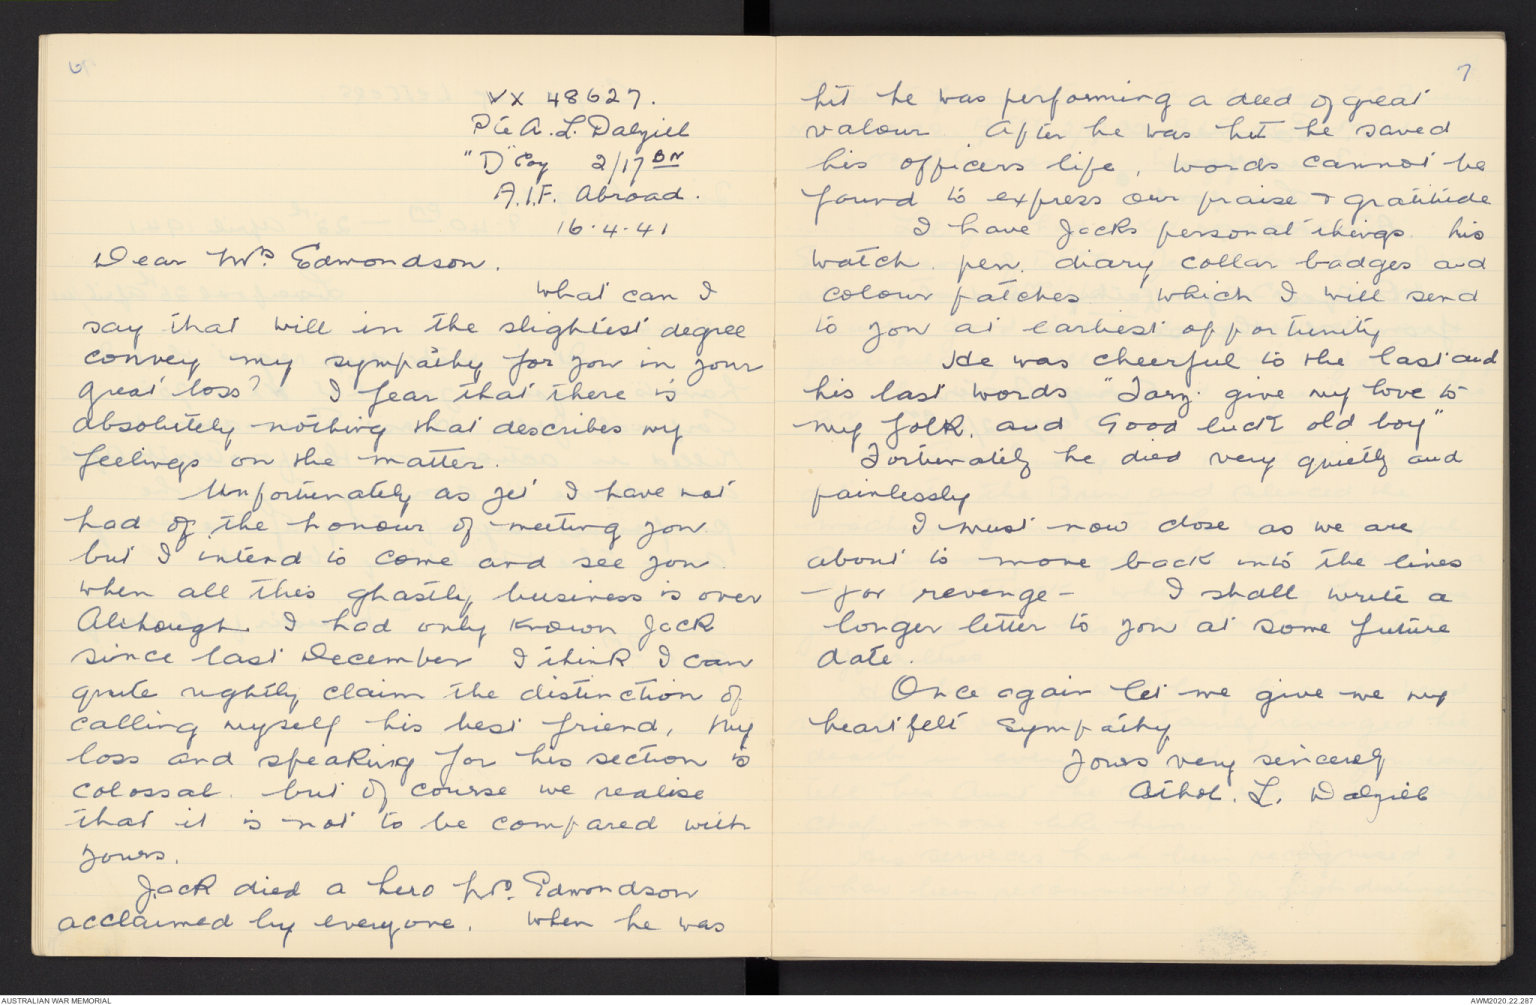 6
VX 48627.
Pte A. L. Dalziel
"D" Coy 2/17 BN
A.I.F. Abroad.
16.4.41
Dear Mrs. Edmondson.
What can I
say that will in the slightest degree
convey my sympathy for you in your
great loss? I fear that there is
absolutely nothing that describes my
feelings on the matter.
Unfortunately as yet I have not
had of the honour of meeting you
but I intend to come and see you
when all this ghastly business is over
Although I had only known Jack
since last December I think I can
quite rightly claim the distinction of
calling myself his best friend, My
loss and speaking for his section is
colossal. but of course we realise
that it is not to be compared with
yours.
Jack died a hero Mrs. Edmondson
acclaimed by everyone. When he was
7
hit he was performing a deed of great
valour. After he was hit he saved
his officers life, words cannot be
found to express our praise & gratitude
I have Jacks personal things. his
watch. pen. diary collar badges and
colour patches which I will send
to you at earliest opportunity
He was cheerful to the last and
his last words "Tarz. give my love to
my folk. and Good luck old boy"
Fortunately he died very quietly and
painlessly
I must now close as we are
about to move back into the lines
- for revenge - I shall write a
longer letter to you at some future
date.
Once again let me give me my
heartfelt sympathy
Yours very sincerely
Athol. L. Dalziel
AUSTRALIAN WAR MEMORIAL
AWM2020.22.287